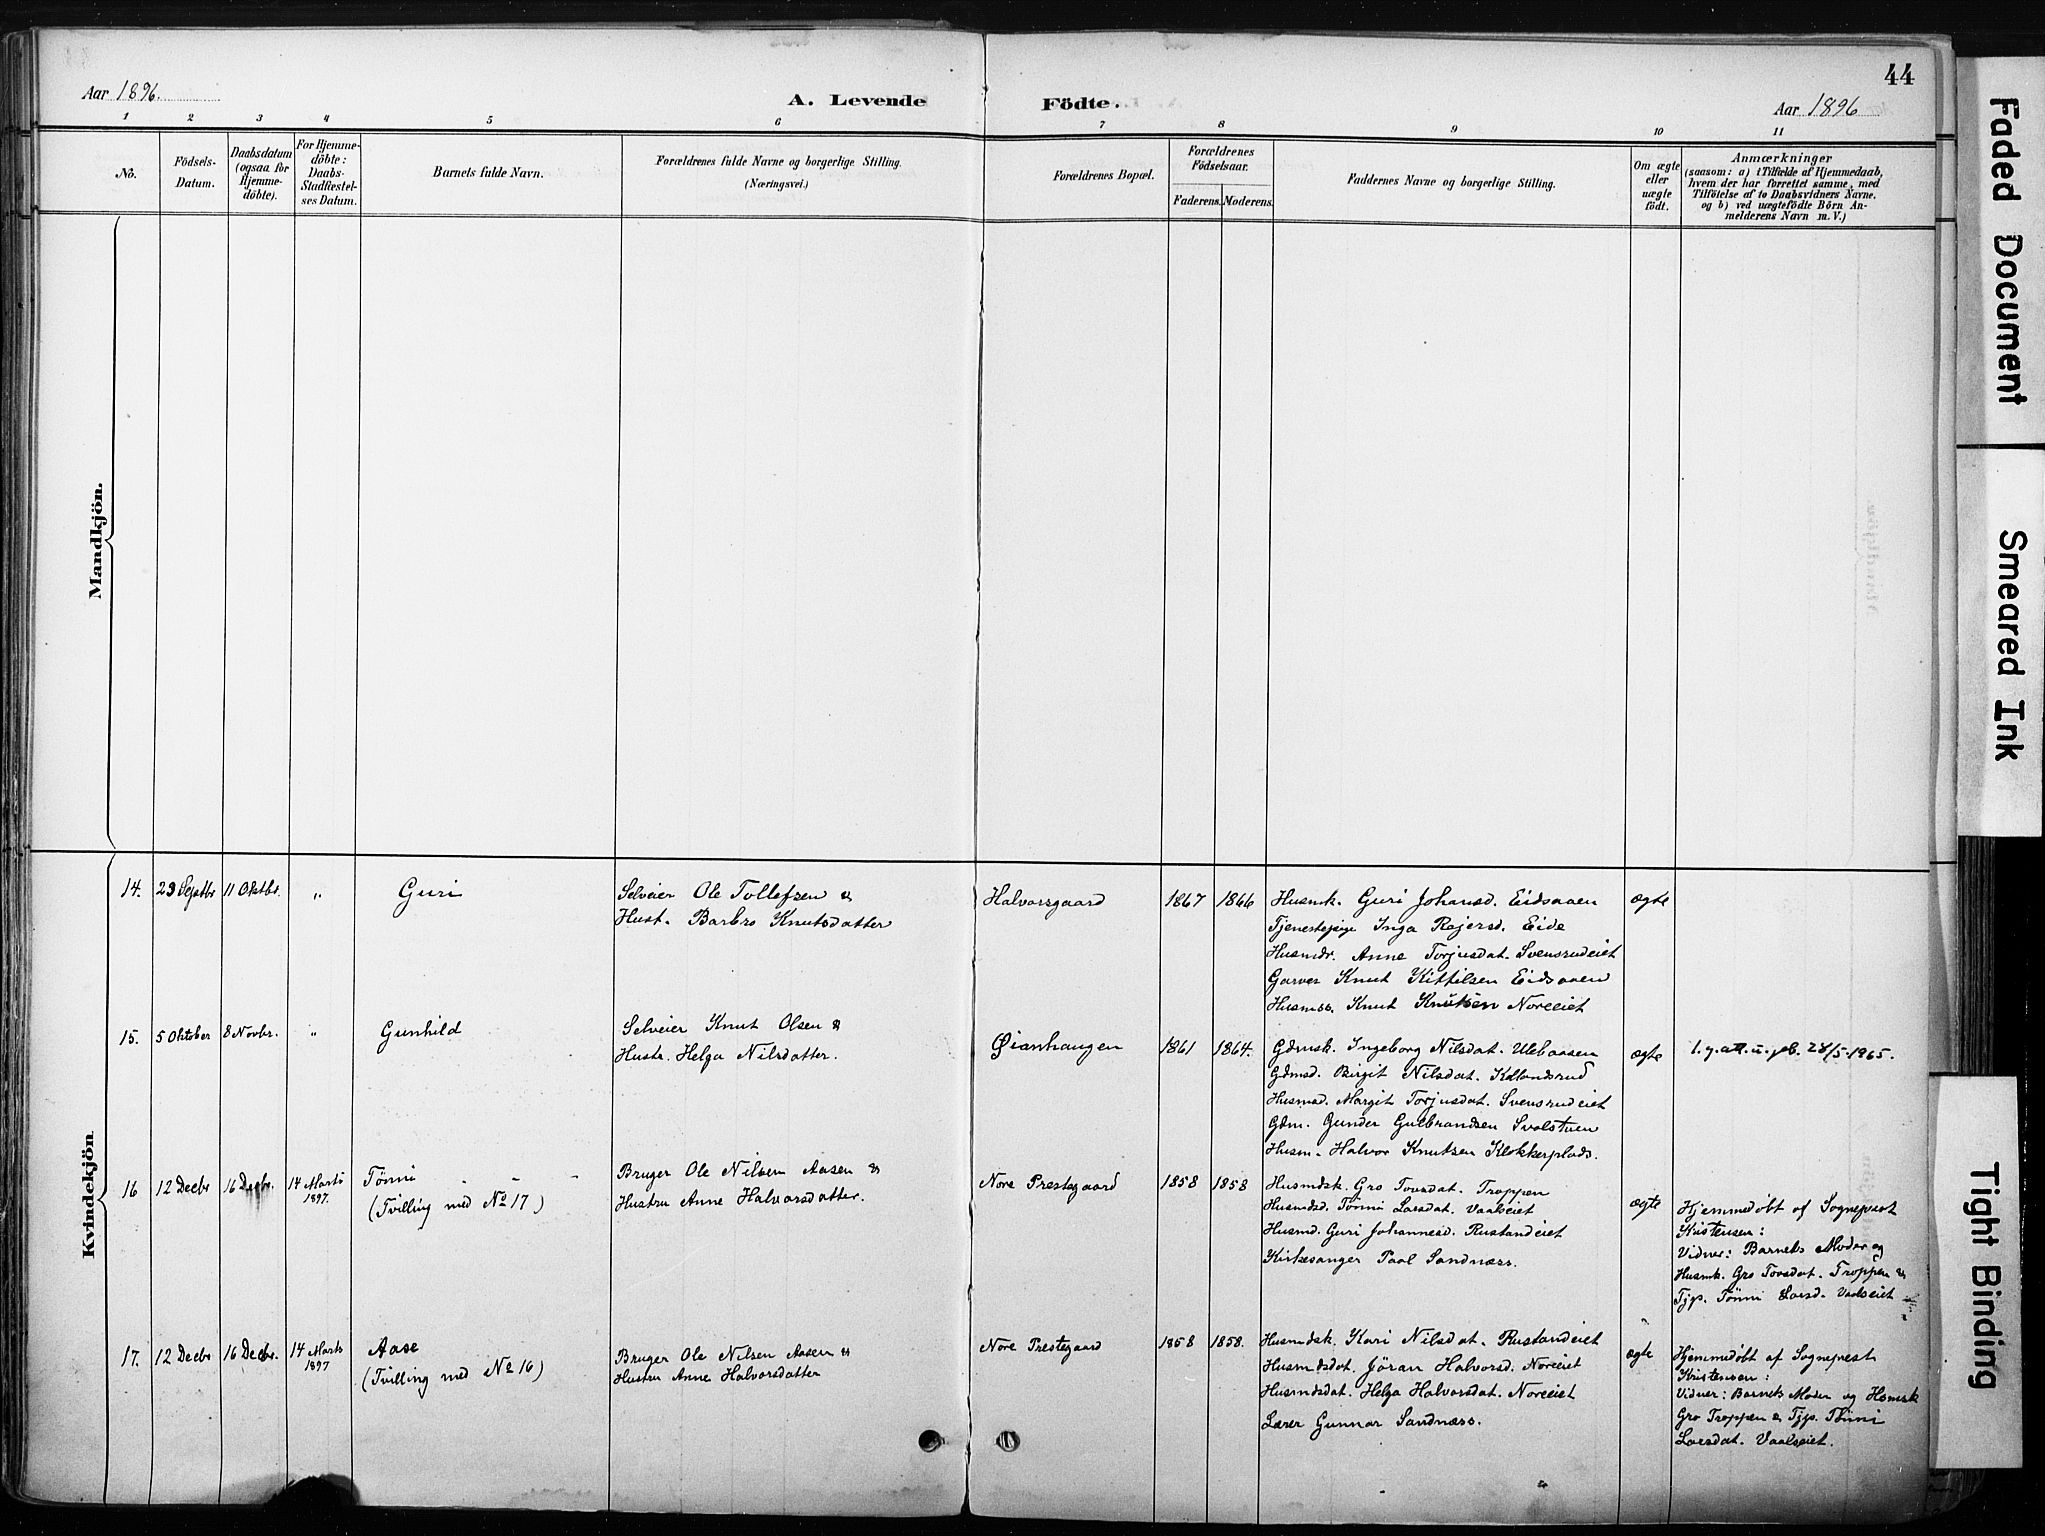 44
Aar 1896.
A. Levende Födte.
Aar 1896
1 2 3 4 5 6 7 8 9 10 11
No.
Födsels-
Datum.
Daabsdatum
(ogsaa for
Hjemme-
döbte).
For Hjemme-
döbte:
Daabs-
Stadfæstel-
ses Datum.
Barnets fulde Navn.
Forældrenes fulde Navne og borgerlige Stilling.
(Næringsvei.)
Forældrenes Bopæl.
Forældrenes
Födselsaar.
Faderens. Moderens.
Faddernes Navne og borgerlige Stilling.
Om ægte
eller
uægte
födt.
Anmærkninger
(saasom: a) i Tilfælde af Hjemmedaab,
hvem der har forrettet samme, med
Tilföielse af to Daabsvidners Navne.
og b) ved uægtefödte Börn An-
melderens Navn m. V.)
Mandkjön.
Kvindekjön.
14. 29 Septbr 11 Oktbr. "
Guri
Selveier Ole Tollefsen &
Hust. Barbro Knutsdatter
Halvorsgaard
1867 1866
Husmk. Guri Johansd. Eidsaaen
Tjenestepige Inga Rejersd. Eide
Husmdr. Anne Torjusdat. Svensrudeiet
Garver Knut Kittilsen Eidsaaen
Husmss. Knut Knutsen Noreeiet
ægte
15. 5 Oktober 8 Novbr. "
Gunhild
Selveier Knut Olsen &
Hustr. Helga Nilsdatter.
Øianhaugen
1861 1864.
Gdmsk. Ingeborg Nilsdat. Ulebaasen
Gdmsd. Birgit Nilsdat. Kollandsrud
Husmsd. Margit Torjusdat. Svensrudeiet
Gdm. Gunder Gulbrandsen Svalstuen
Husm. Halvor Knutsen Klokkerplads.
ægte
28/5-1965.
16 12 Decbr 16 Decbr. 14 Marts
1897.
Tønni
(Tvilling med No 17)
Bruger Ole Nilsen Aasen &
Hustru Anne Halvorsdatter.
Nore Prestegaard
1858 1858
Husmdsk. Gro Tovsdat. Troppen
Husmdsd. Tønni Larsdat. Vaalseiet
Husmd. Guri Johannesd. Rustandeiet
Kirkesanger Paal Sandnæss.
ægte
Hjemmedøbt af Sogneprest
Kristensen:
Vidner: Barnets Moder og
Husmk. Gro Tovsdat. Troppen &
Tjp. Tønni Larsd. Vaalseiet
17. 12 Decbr 16 Decbr. 14 Marts
1897
Aase
(Tvilling med No 16)
Bruger Ole Nilsen Aasen &
Hustru Anne Halvorsdatter
Nore Prestegaard
1858 1858.
Husmdsk. Kari Nilsdat. Rustandeiet
Husmdsdat. Jöran Halvorsd. Noreeiet
Husmdsdat. Helga Halvorsdat. Noreeiet
Lærer Gunnar Sandnæss.
ægte
Hjemmedøbt af Sogneprest
Kristensen:
Vidner: Barnets Moder og Husmsk
Gro Troppen & Tjp. Tönni
Larsdat. Vaalseiet.
Faded Document
Smeared Ink
Tight Binding